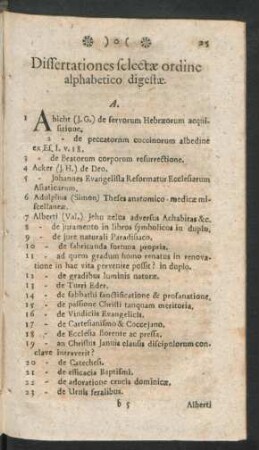 )o( 25
Dissertationes selectæ ordine
alphabetico digestæ
A.
1 Abicht (J. G.) de servorum Hebræorum acquisitione,
2 - de peccatorum coccinorum albedine
ex Es. I. v. 18.
3 - de Beatorum corporum resurrectione.
4 Acker (J. H.) de Deo.
5 - Johannes Evangelista Reformatus Ecclesiarum
Asiaticarum.
6 Adolphus (Simon) Theses anatomico-medicæ miscellaneæ.
7 Alberti (Val.) Jehu zelus adversus Achabitas &c.
8 - de juramento in libros symbolicos in duplo.
9 - de jure naturali Paradisæo.
10 - de fabricanda fortuna propria.
11 - ad quem gradum homo renatus in renovatione
in hac vita pervenire possit? in duplo.
12 - de gradibus luminis naturæ.
13 - de Turri Eder.
14 - de sabbathi sanctificatione & profanatione.
15 - de passione Christi tanquam meritoria.
16 - de Vindiciis Evangelicis.
17 - de Cartesianismo & Coccejano.
18 - de Ecclesia florente ac pressa.
19 - an Christus Januis clausis discipulorum conclave
intraverit?
20 - de Catechesi.
21 - de efficacia Baptismi.
22 - de adoratione crucis dominicæ.
23 - de Urnis feralibus.
b 5 Alberti